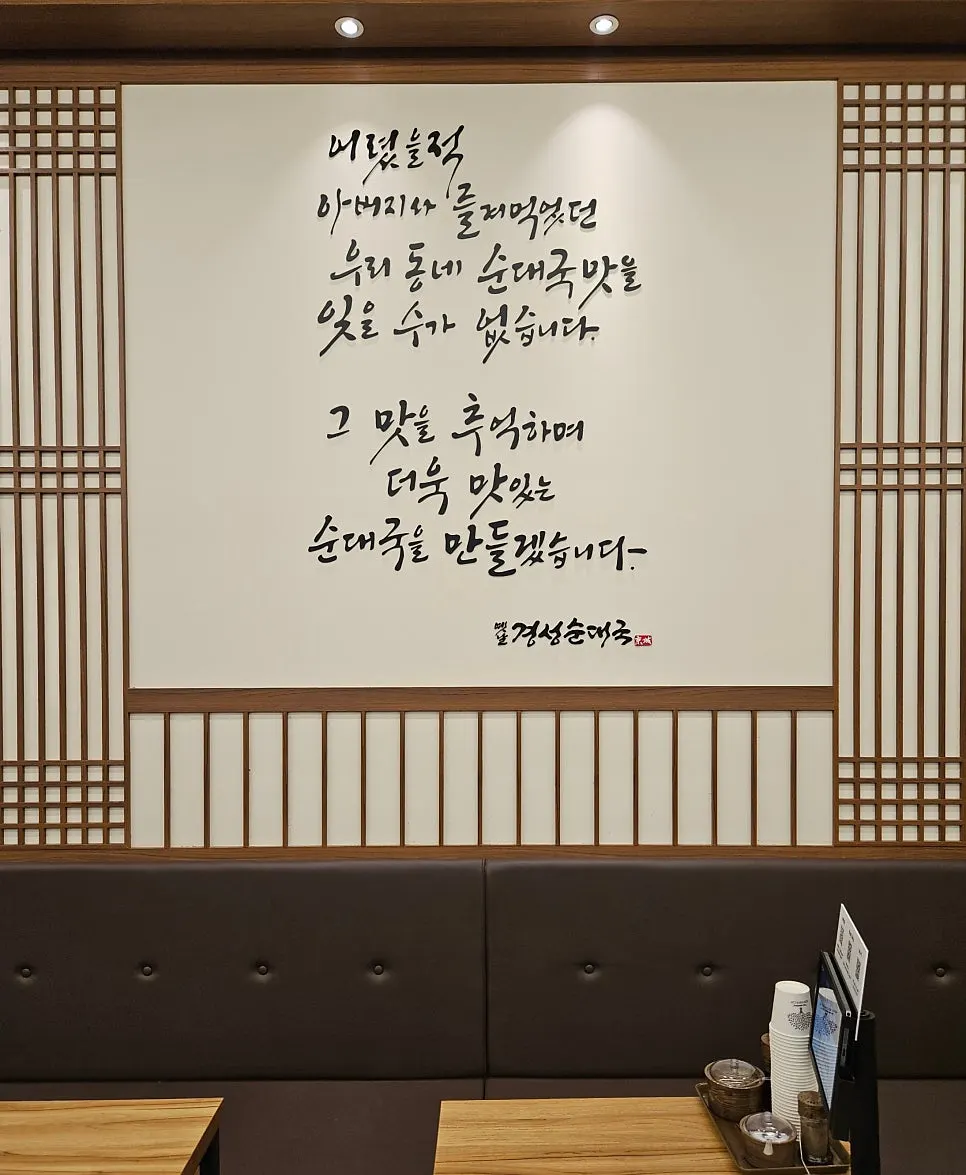 어렸을적
아버지와 즐겨먹었던
우리 동네 순대국맛을
잊을 수가 없습니다.
그 맛을 추억하며
더욱 맛있는
순대국을 만들겠습니다.
옛날 경성순대국 京城